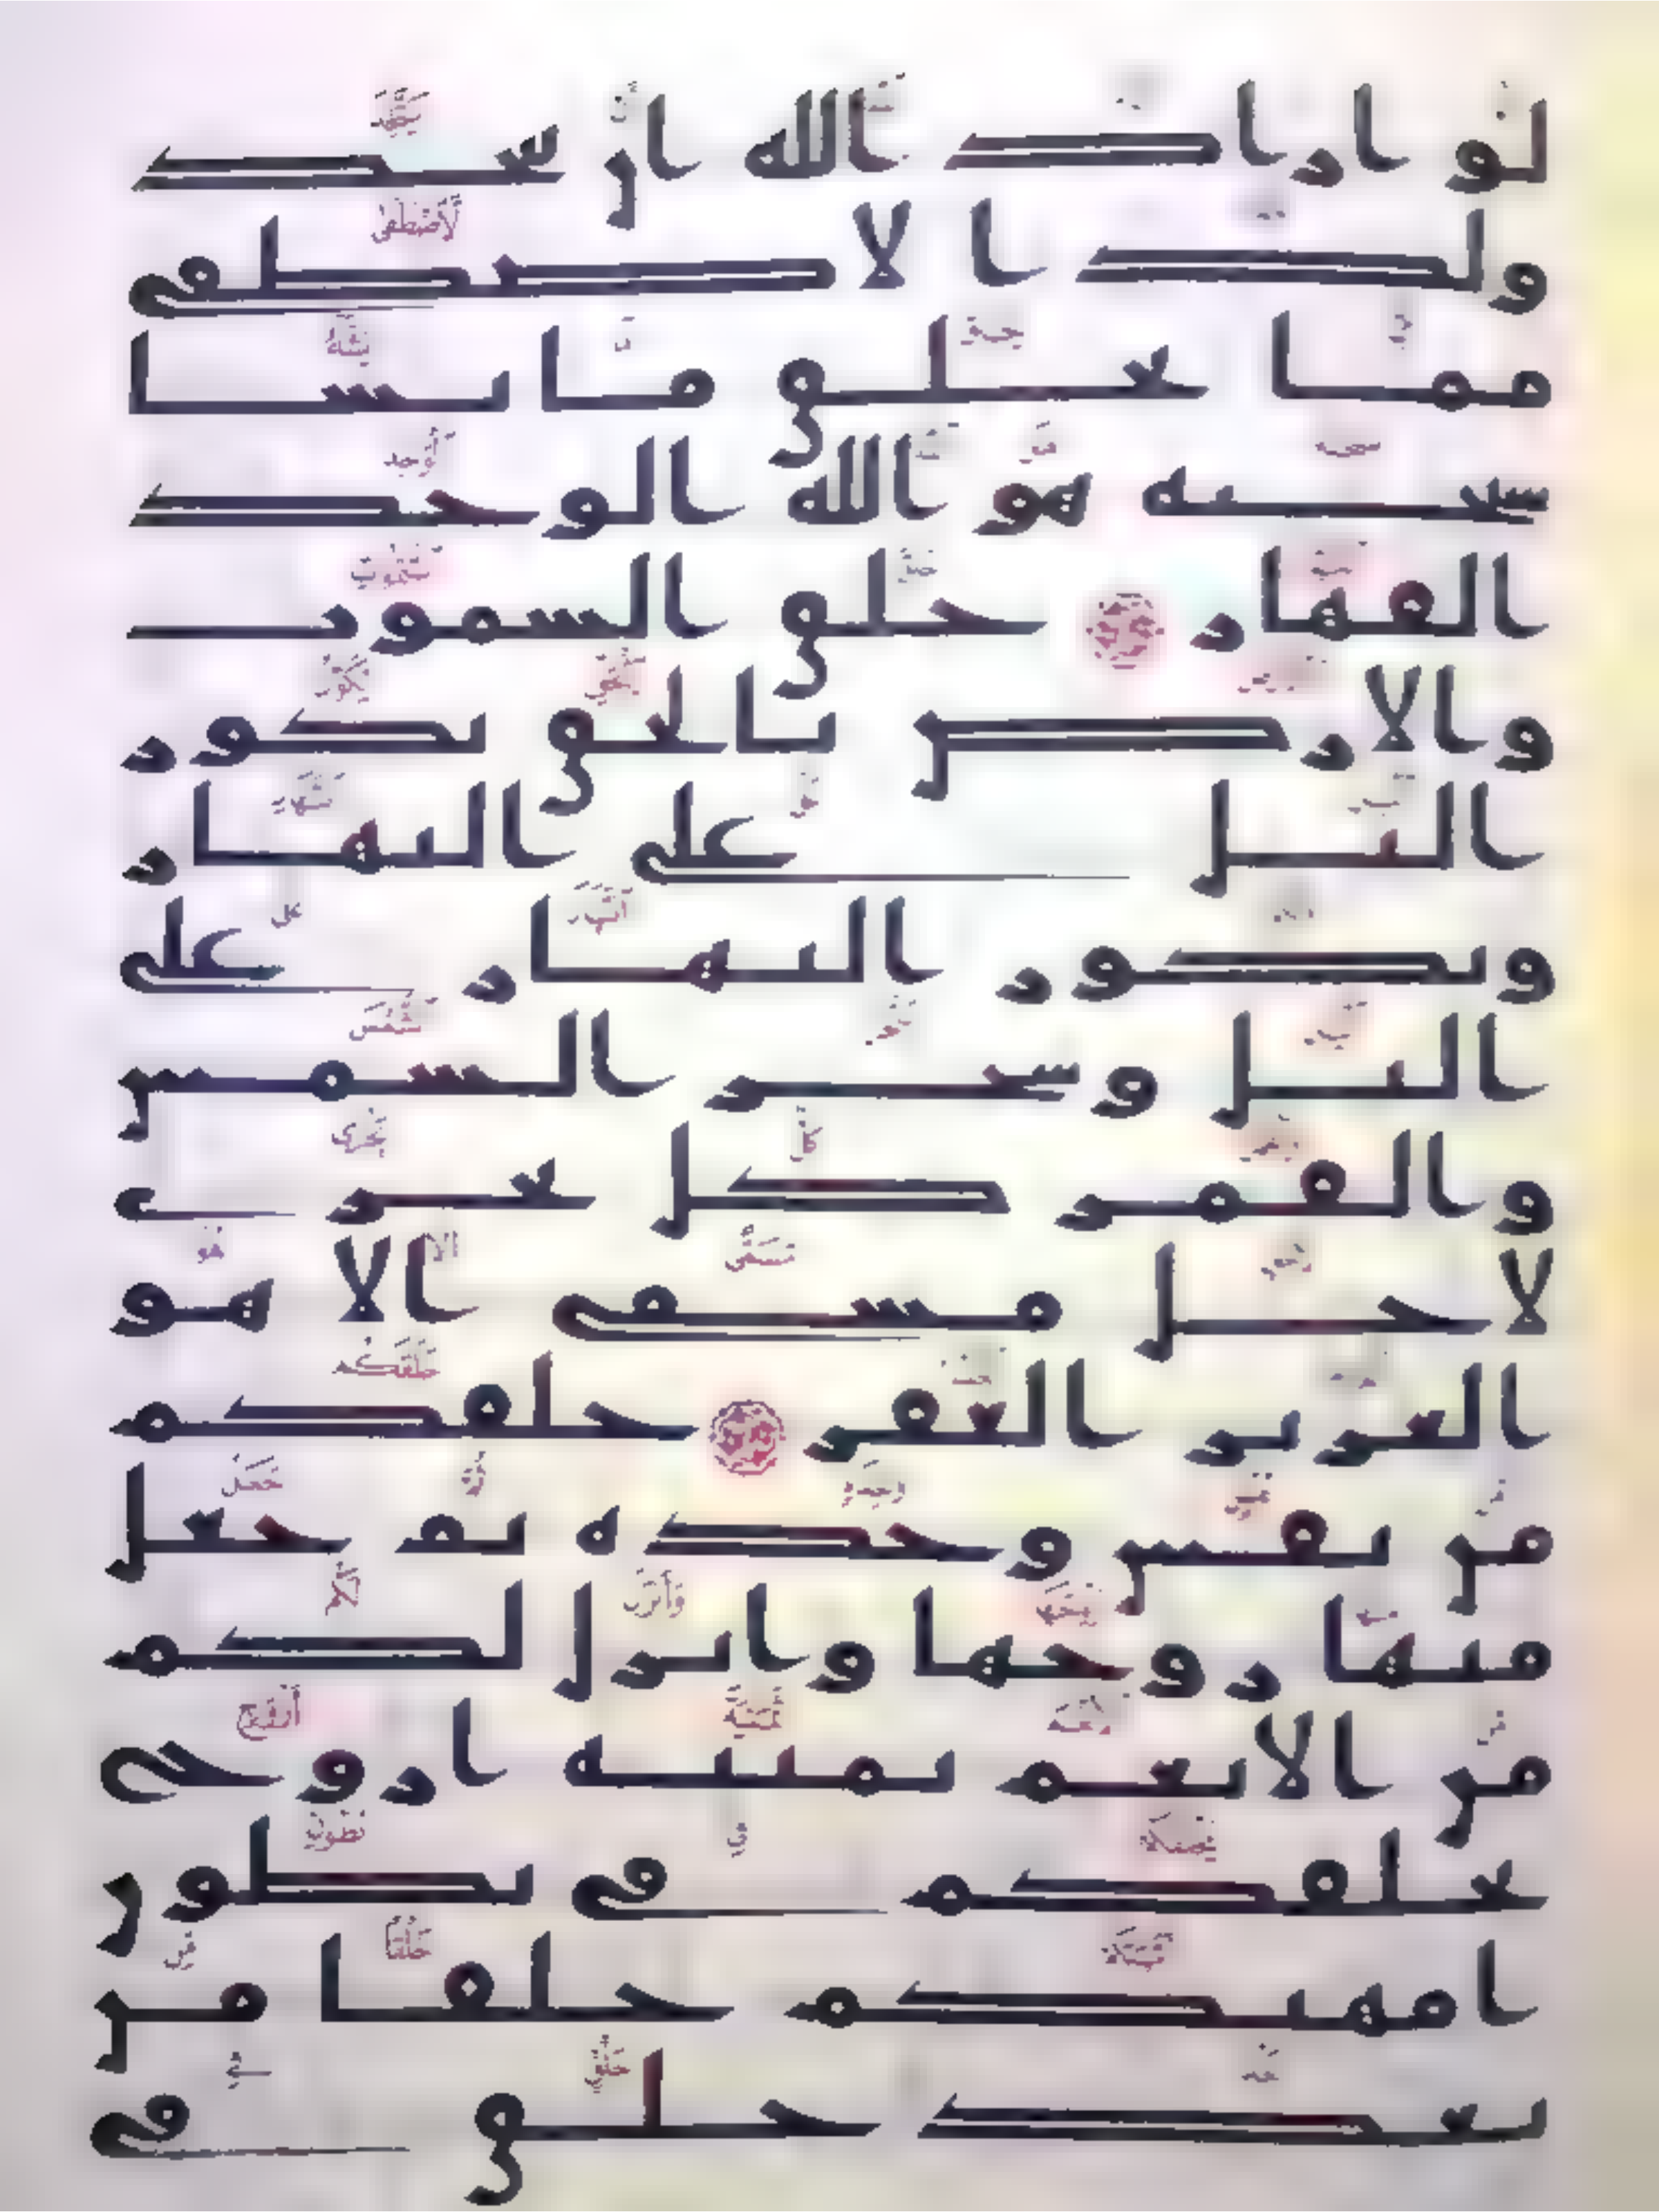 لو اراد الله ان يتخذ
ولدا لاصطفى
مما يخلق ما يشا
سبحنه هو الله الوحد
القهار خلق السموت
والارض بالحق يكور
اليل على النهار
ويكور النهار على
اليل وسخر الشمس
والقمر كل يجري
لاجل مسمى الا هو
العزيز الغفر خلقكم
من نفس وحده ثم جعل
منها زوجها وانزل لكم
من الانعم ثمنيه ازوج
يخلقكم في بطون
امهتكم خلقا من
بعد خلق في